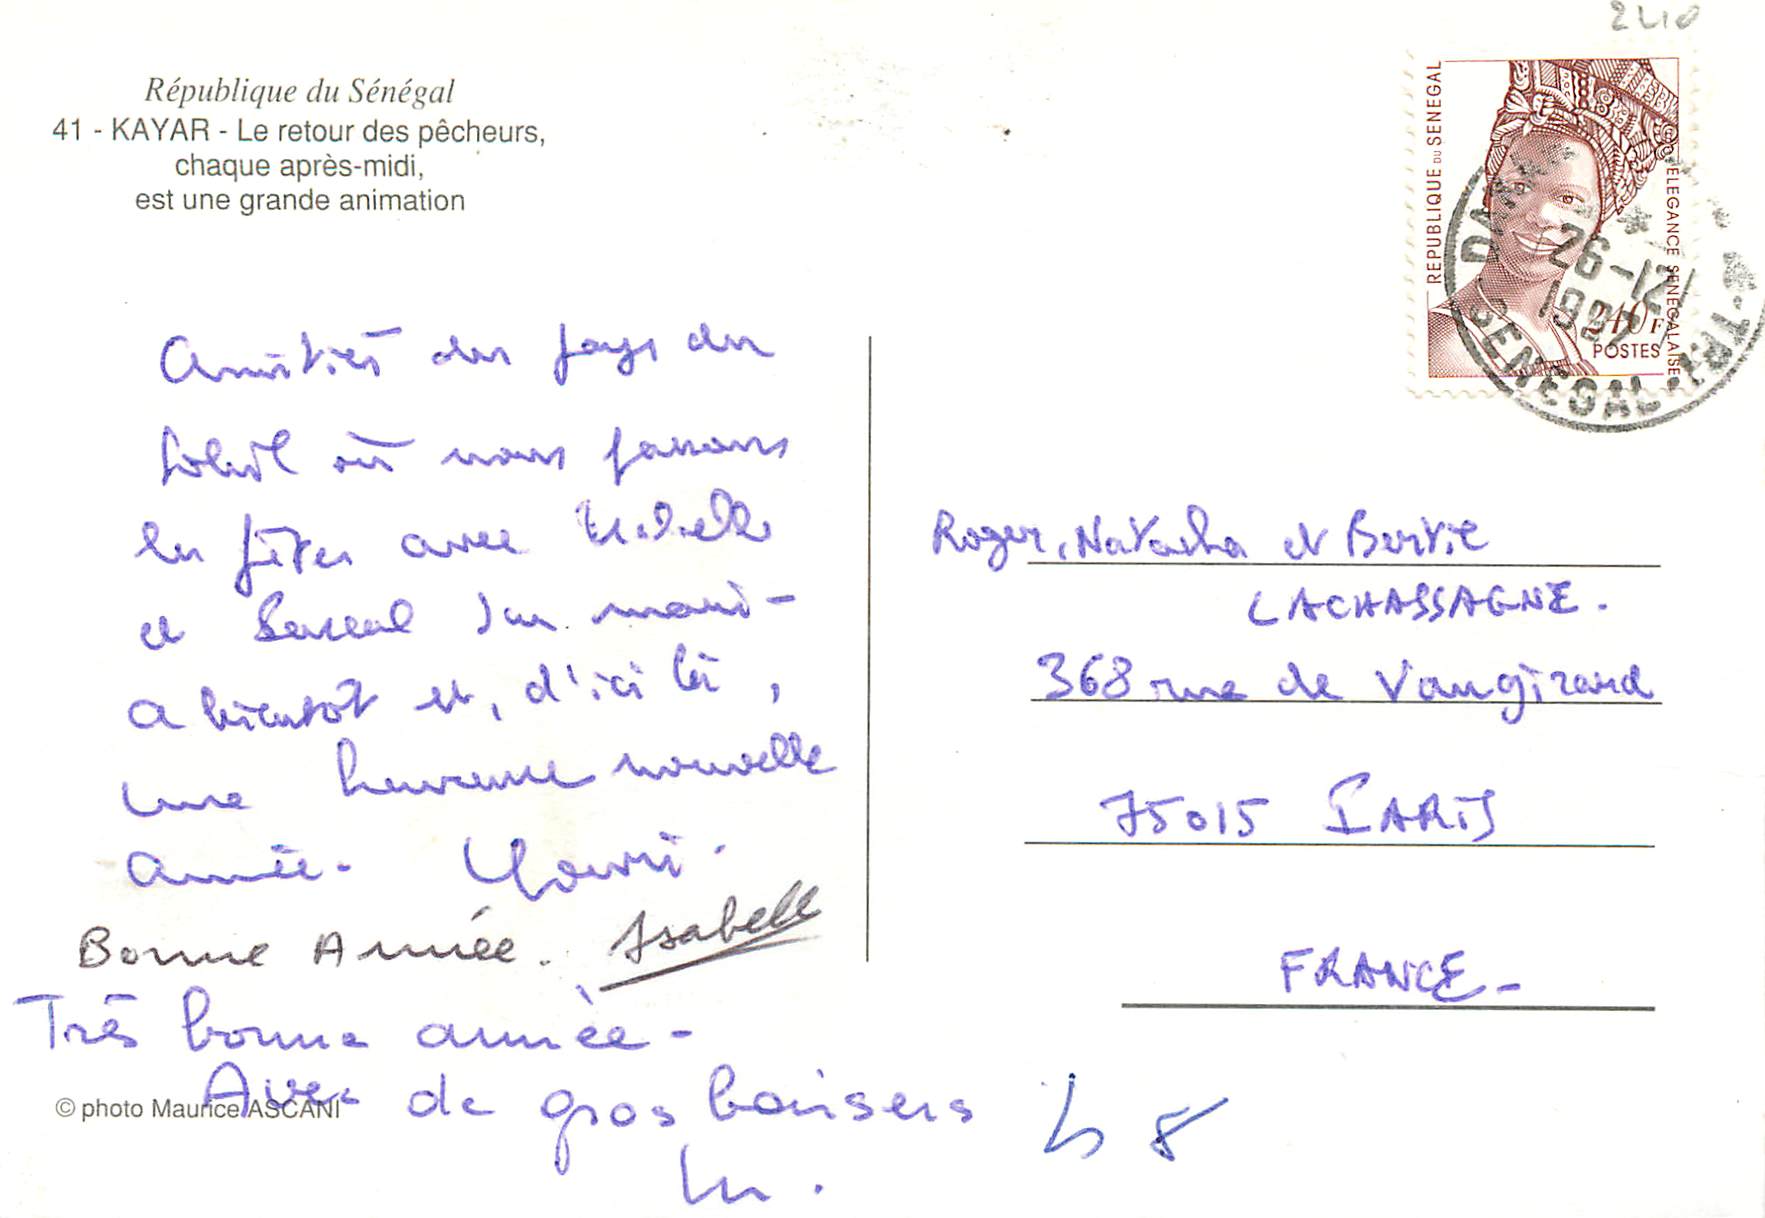 240
République du Sénégal
41 - KAYAR - Le retour des pêcheurs,
chaque après-midi,
est une grande animation
REPUBLIQUE DU SENEGAL
ELEGANCE SENEGALAISE
240 F
POSTES
26-12
SENEGAL
Amitiés du pays du
soleil où nous passons
les fêtes avec Isabelle
et son mari-
A bientôt et, d'ici là,
une heureuse nouvelle
année.
Bonne Année. Isabelle
Très bonne année-
Avec de gros baisers
© photo Maurice ASCANI
Roger, Natacha et Bertil
LACHASSAGNE.
368 rue de Vaugirard
75015 PARIS
FRANCE-